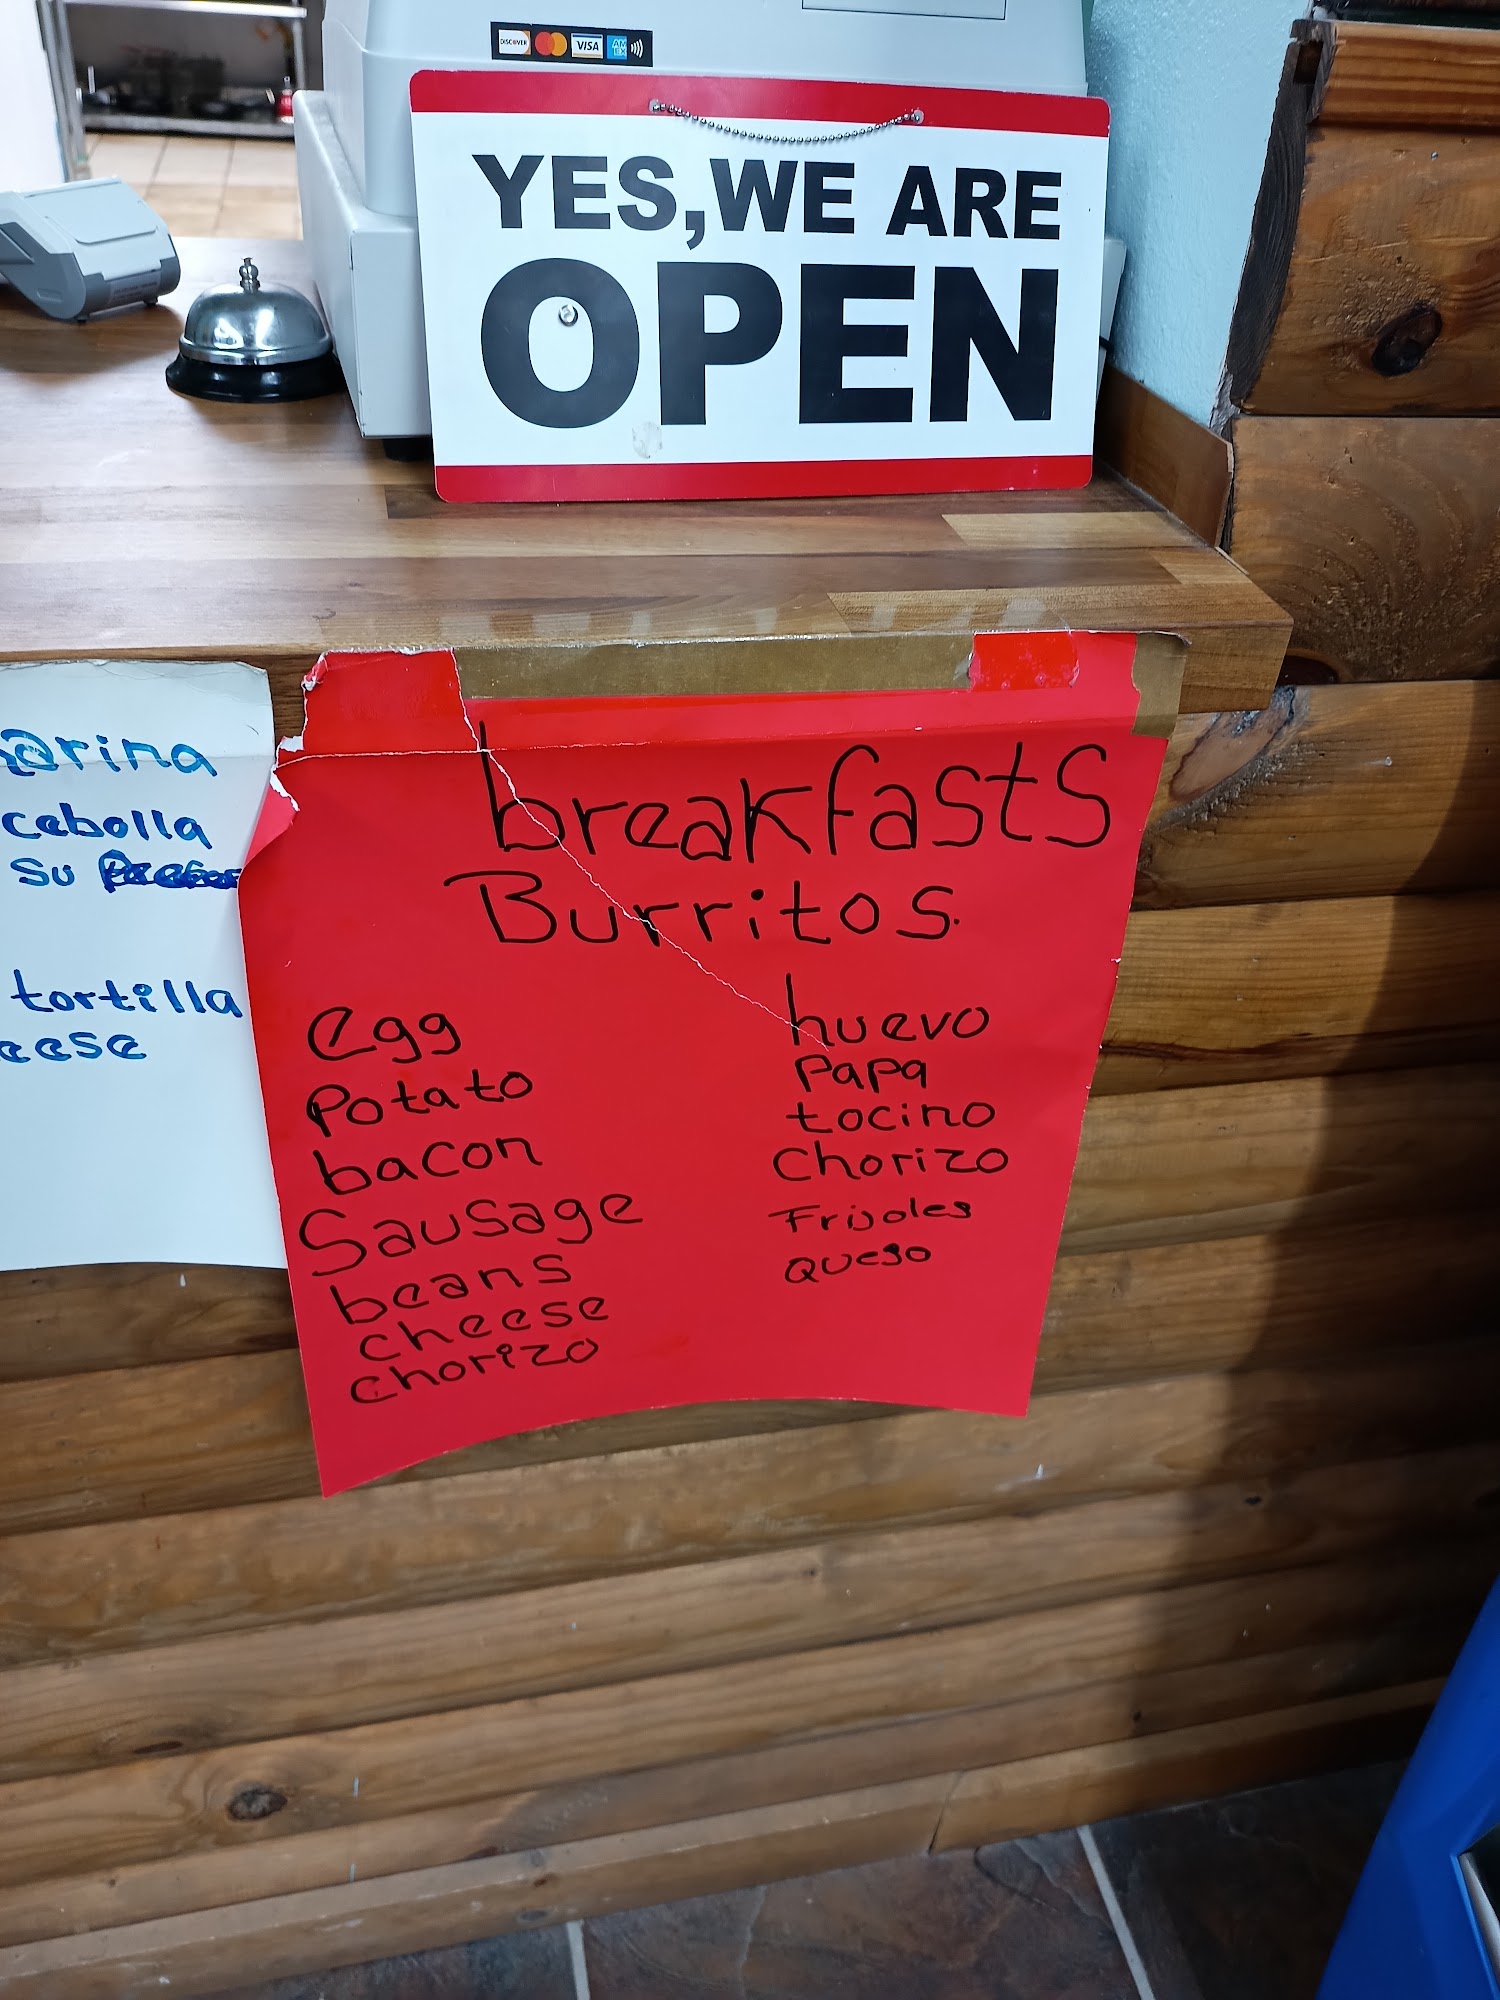 DISCOVER VISA AMEX
YES, WE ARE
OPEN
arina
cebolla
su
tortilla
eese
breakfasts
Burritos.
egg
Potato
bacon
Sausage
beans
cheese
chorizo
huevo
PaPa
tocino
Chorizo
Frijoles
Queso